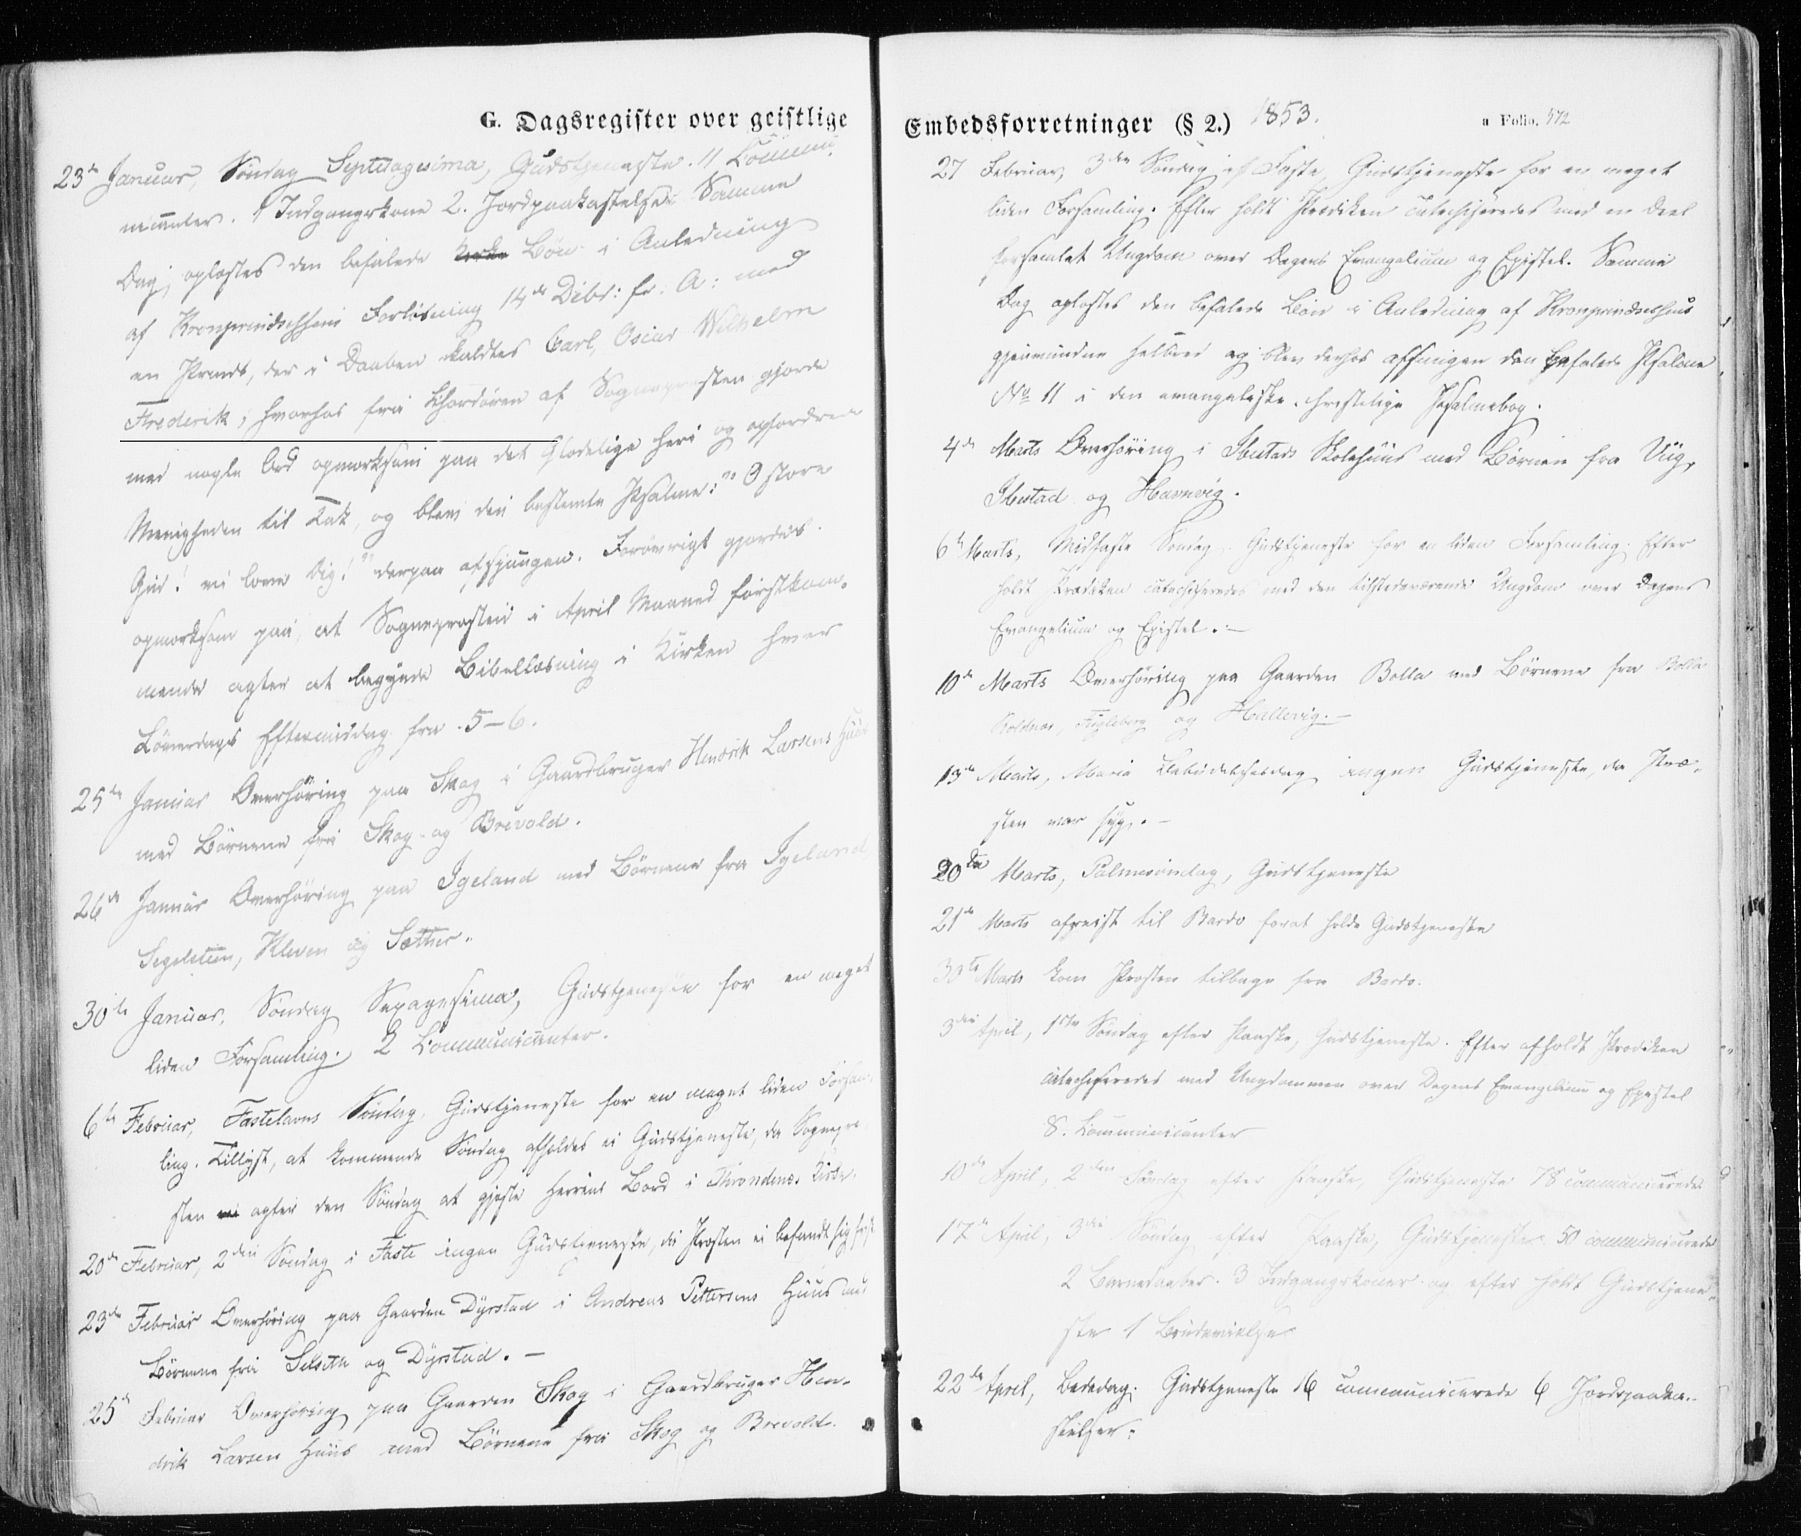 G. Dagsregister over geistlige
23de Januar, Søndag Septuagesima, Gudstjeneste. 11 Commu-
nicanter. 1 Indgangskone 2. Jordpaakastelser. Samme
Dag oplæstes den befalede Bøn i Anledning
af Kronprindsessens Forløsning 14de Decbr: f. A: med
en Prinds, der i Daaben kaldtes Carl, Oscar Wilhelm
Frederik; hvorhos fra Chordøren af Sognepræsten gjorde
med nogle Ord opmærksom paa det glædelige heri og opfordrede
Menigheden til Tak, og blev den bestemte Psalme: "O store
Gud! vi love Dig!" derpaa afsjungen. Forøvrigt gjordes
opmærksom paa, at Sognepræsten i April Maaned førstkom-
mende agter at begynde Bibellæsning i Kirken hver
Løverdags Eftermiddag fra 5-6.
25de Januar Overhøring paa Skog i Gaardbruger Hendrik Larsens Huus
med Børnene fra Skog og Brevold.
26de Januar Overhøring paa Igeland med Børnene fra Igeland,
Segelsteen, Kleven og Sætter.
30te Januar, Søndag Sexagesima, Gudstjeneste for en meget
liden Forsamling. 2 Communicanter.
6te Februar, Fastelavns Søndag, Gudstjeneste for en meget liden Forsam-
ling. Tillyst, at kommende Søndag afholdes ei Gudstjeneste, da Sognepræ-
sten agter den Søndag at gjeste Herrens Bord i Throndenæs Kirke.
20de Februar, 2den Søndag i Faste ingen Gudstjeneste, da Præsten ei befandt sig frisk
23de Februar Overhøring paa Gaarden Dyrstad i Andreas Pettersens Huus med
Børnene fra Selseth og Dyrstad. -
25de Februar Overhøring paa Gaarden Skog i Gaardbruger Hen-
drik Larsen Huus med Børnene fra Skog og Brevold.
Embedsforretninger (§ 2.) 1853.
a Folio. 572
27 Februar, 3die Søndag i Faste, Gudstjeneste for en meget
liden Forsamling. Efter holdt Prædiken catechiseredes med en Deel
forsamlet Ungdom over Dagens Evangelium og Epistel. Samme
Dag oplæstes den befalede Bøn i Anledning af Kronprindsessens
gjenvundne Helbred og blev derhos afsungen den befalede Psalme
No 11 i den evangeliske christelige Psalmebog.
4de Marts Overhøring i Ibestads Skolehuus med Børnene fra Vig,
Ibestad og Hamnvig.
6te Marts, Midfaste Søndag, Gudstjeneste for en liden Forsamling. Efter
holdt Prædiken catechiseredes med den tilstedeværende Ungdom over Dagens
Evangelium og Epistel. -
10de Marts Overhøring paa Gaarden Bolla med Børnene fra Bolla
Fugleberg og Hallevig. -
13de Marts, Maria Bebudelsesdag ingen Gudstjeneste, da Præ-
sten var syg. -
20de Marts, Palmesøndag, Gudstjeneste
21de Marts afreist til Bardo forat holde Gudstjeneste
Marts kom Præsten tilbage fra Bardo.
3die April, 1ste Søndag efter Paaske, Gudstjeneste. Efter afholdt Prædiken
catechiseredes med Ungdommen over Dagens Evangelium og Epistel
8. Communicanter
10de April, 2den Søndag efter Paaske, Gudstjeneste 78 communicerede
17de April, 3die Søndag efter Paaske, Gudstjeneste 50 communicerede
2 Barnedaaber. 3 Indgangskoner og efter holdt Gudstjene-
ste 1 Brudevielse
22de April, Bededag. Gudstjeneste 16 communicerede 6 Jordpaaka-
stelser.